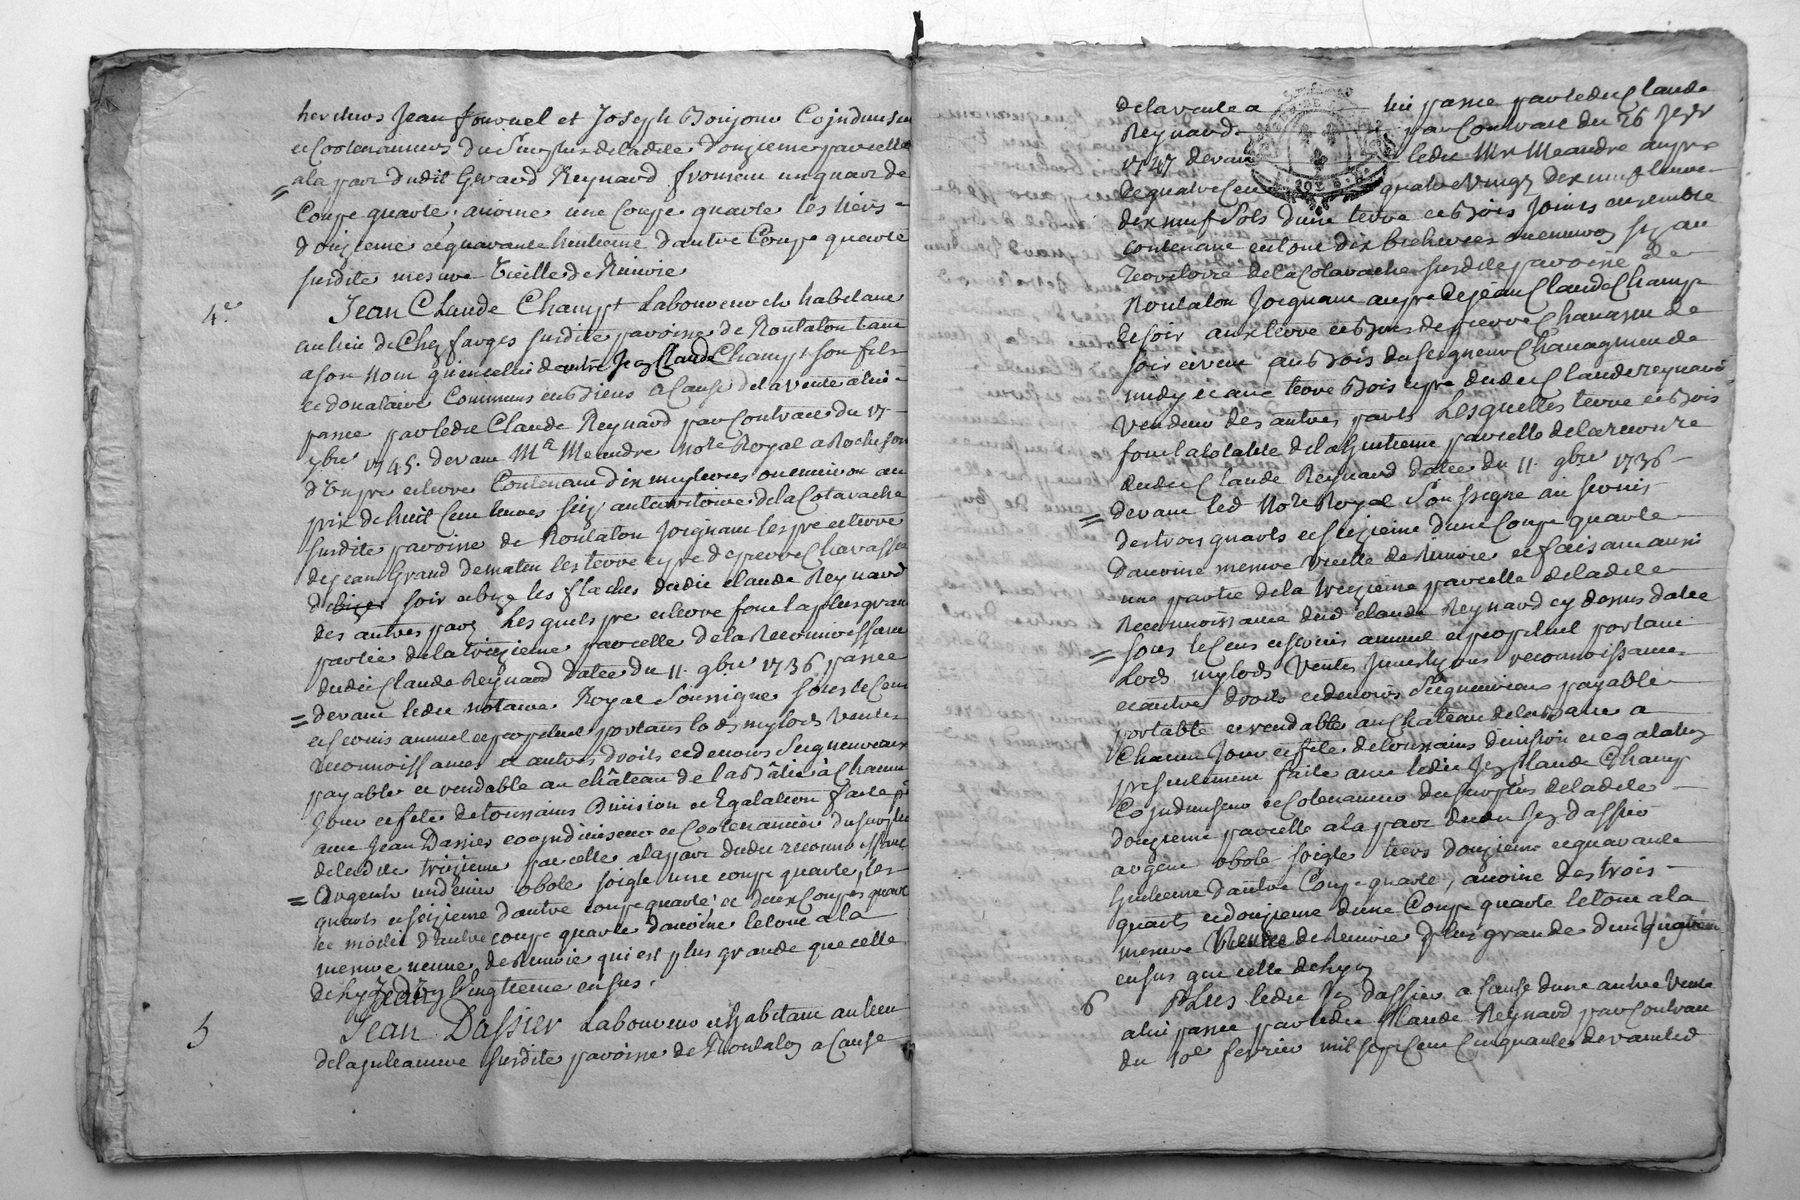 heritiers Jean fournel et Joseph Bonjour Cojndiviseur
et Cotenanciers du Surplus de ladite Douzieme parcelle
a la part dudit Gerard Reynaud froment un quart de
Coupe quarte, avoine une Coupe quarte les tiers
douzieme et quarante huitieme d'autre Coupe quarte
susdite mesure Vieille de Riuirie
4e
Jean Claude Champt Laboureur habitant
au lieu de Chez farges susdite paroisse de Rontalon tant
a son nom qu'en celui d'autre Jean Claude Champt son fils
et donataire Communs en biens a Cause de la vente a lui
passée par ledit Claude Reynaud par Contract du 17
1745. devant Me Meandre Note Royal a Rochefort
d'un pre et terre Contenant dix meyterees ou environ au
prix de huit Cent livres sis au territoire de la Cotavache
susdite paroisse de Rontalon Joignant les pre et terre
de Jean Grand de matin les terre et pre de pierre Chavassu
de soir et bize les flaches dudit Claude Reynaud
des autres parts Lesquels pre et terre font la plus grande
partie de la treizieme parcelle de la Reconnoissance
dudit Claude Reynaud datée du 11. 9bre 1736 passée
devant ledit notaire Royal Soussigne sous le Cens
et servis annuel et perpetuel portant lods mylods Ventes
reconnoissances et autres droits et devoirs Seigneuriaux
payable et rendable au château de la Bâtie à Chacun
Jour et fête de toussaints Division et Egalation faite
avec Jean Dassier cojndiviseur et Cotenancier du surplus
de ladite treizieme parcelle a la part dudit reconnoissant
Argent un denier obole seigle une coupe quarte, les
quarts et seizieme d'autre coupe quarte et deux Coupes quart
et moitié d'autre coupe quarte d'avoine le tout a la
mesure neuve de Riuirie qui est plus grande que celle
de Lyon d'un Vingtieme en sus.
5
Jean Dassier Laboureur et habitant au lieu
de la susdite paroisse de Rontalon a Cause
de la vente a lui passée par ledit Claude
Reynaud par Contract du 26
1747 devant ledit Mre Meandre au prix
de quatre Cent quatre Vingt dix neuf livres
dix neuf Sols d'une terre et Bois Joints ensemble
contenant en tout dix bicherees ou environ sis au
territoire de la Cotavache susdite paroisse de
Rontalon Joignant au pre de Jean Claude Champt
de soir aux terre et Bois de pierre Chavassu de
soir et vent au Bois du Seigneur de
midy et aux terre Bois et pre dudit Claude reynaud
Vendeur des autres parts Lesquelles terre et Bois
font la totalité de la huitieme parcelle de la reconnoissance
dudit Claude Reynaud datée du 11. 9bre 1736
devant led Note Royal Soussigne au servis
des trois quarts et seizieme d'une Coupe quarte
d'avoine mesure Vieille de Riuirie et faisant aussi
une partie de la treizieme parcelle de ladite
Reconnoissance dud Claude Reynaud cy dessus datée
sous le Cens et servis annuel et perpetuel portant
Lods mylods Ventes reconnoissances
et autres droits et devoirs Seigneuriaux payable
portable et rendable au Chateau de la Batie a
Chacun Jour et fête de toussaints division et egalation
presentement faite avec ledit Jean Claude Champt
Cojndiviseur et Cotenancier du surplus de ladite
Douzieme parcelle a la part dudit Jean dassier
argent obole seigle tiers douzieme et quarante
huitieme d'autre Coupe quarte, avoine des trois
quarts et douzieme d'une Coupe quarte le tout a la
mesure Neuve de Riuirie plus grande d'un Vingtieme
en sus que celle de Lyon
6
Plus ledit Jean dassier a Cause d'une autre Vente
a lui passée par ledit Claude Reynaud par Contract
du 10e fevrier mil sept Cent Cinquante devant led